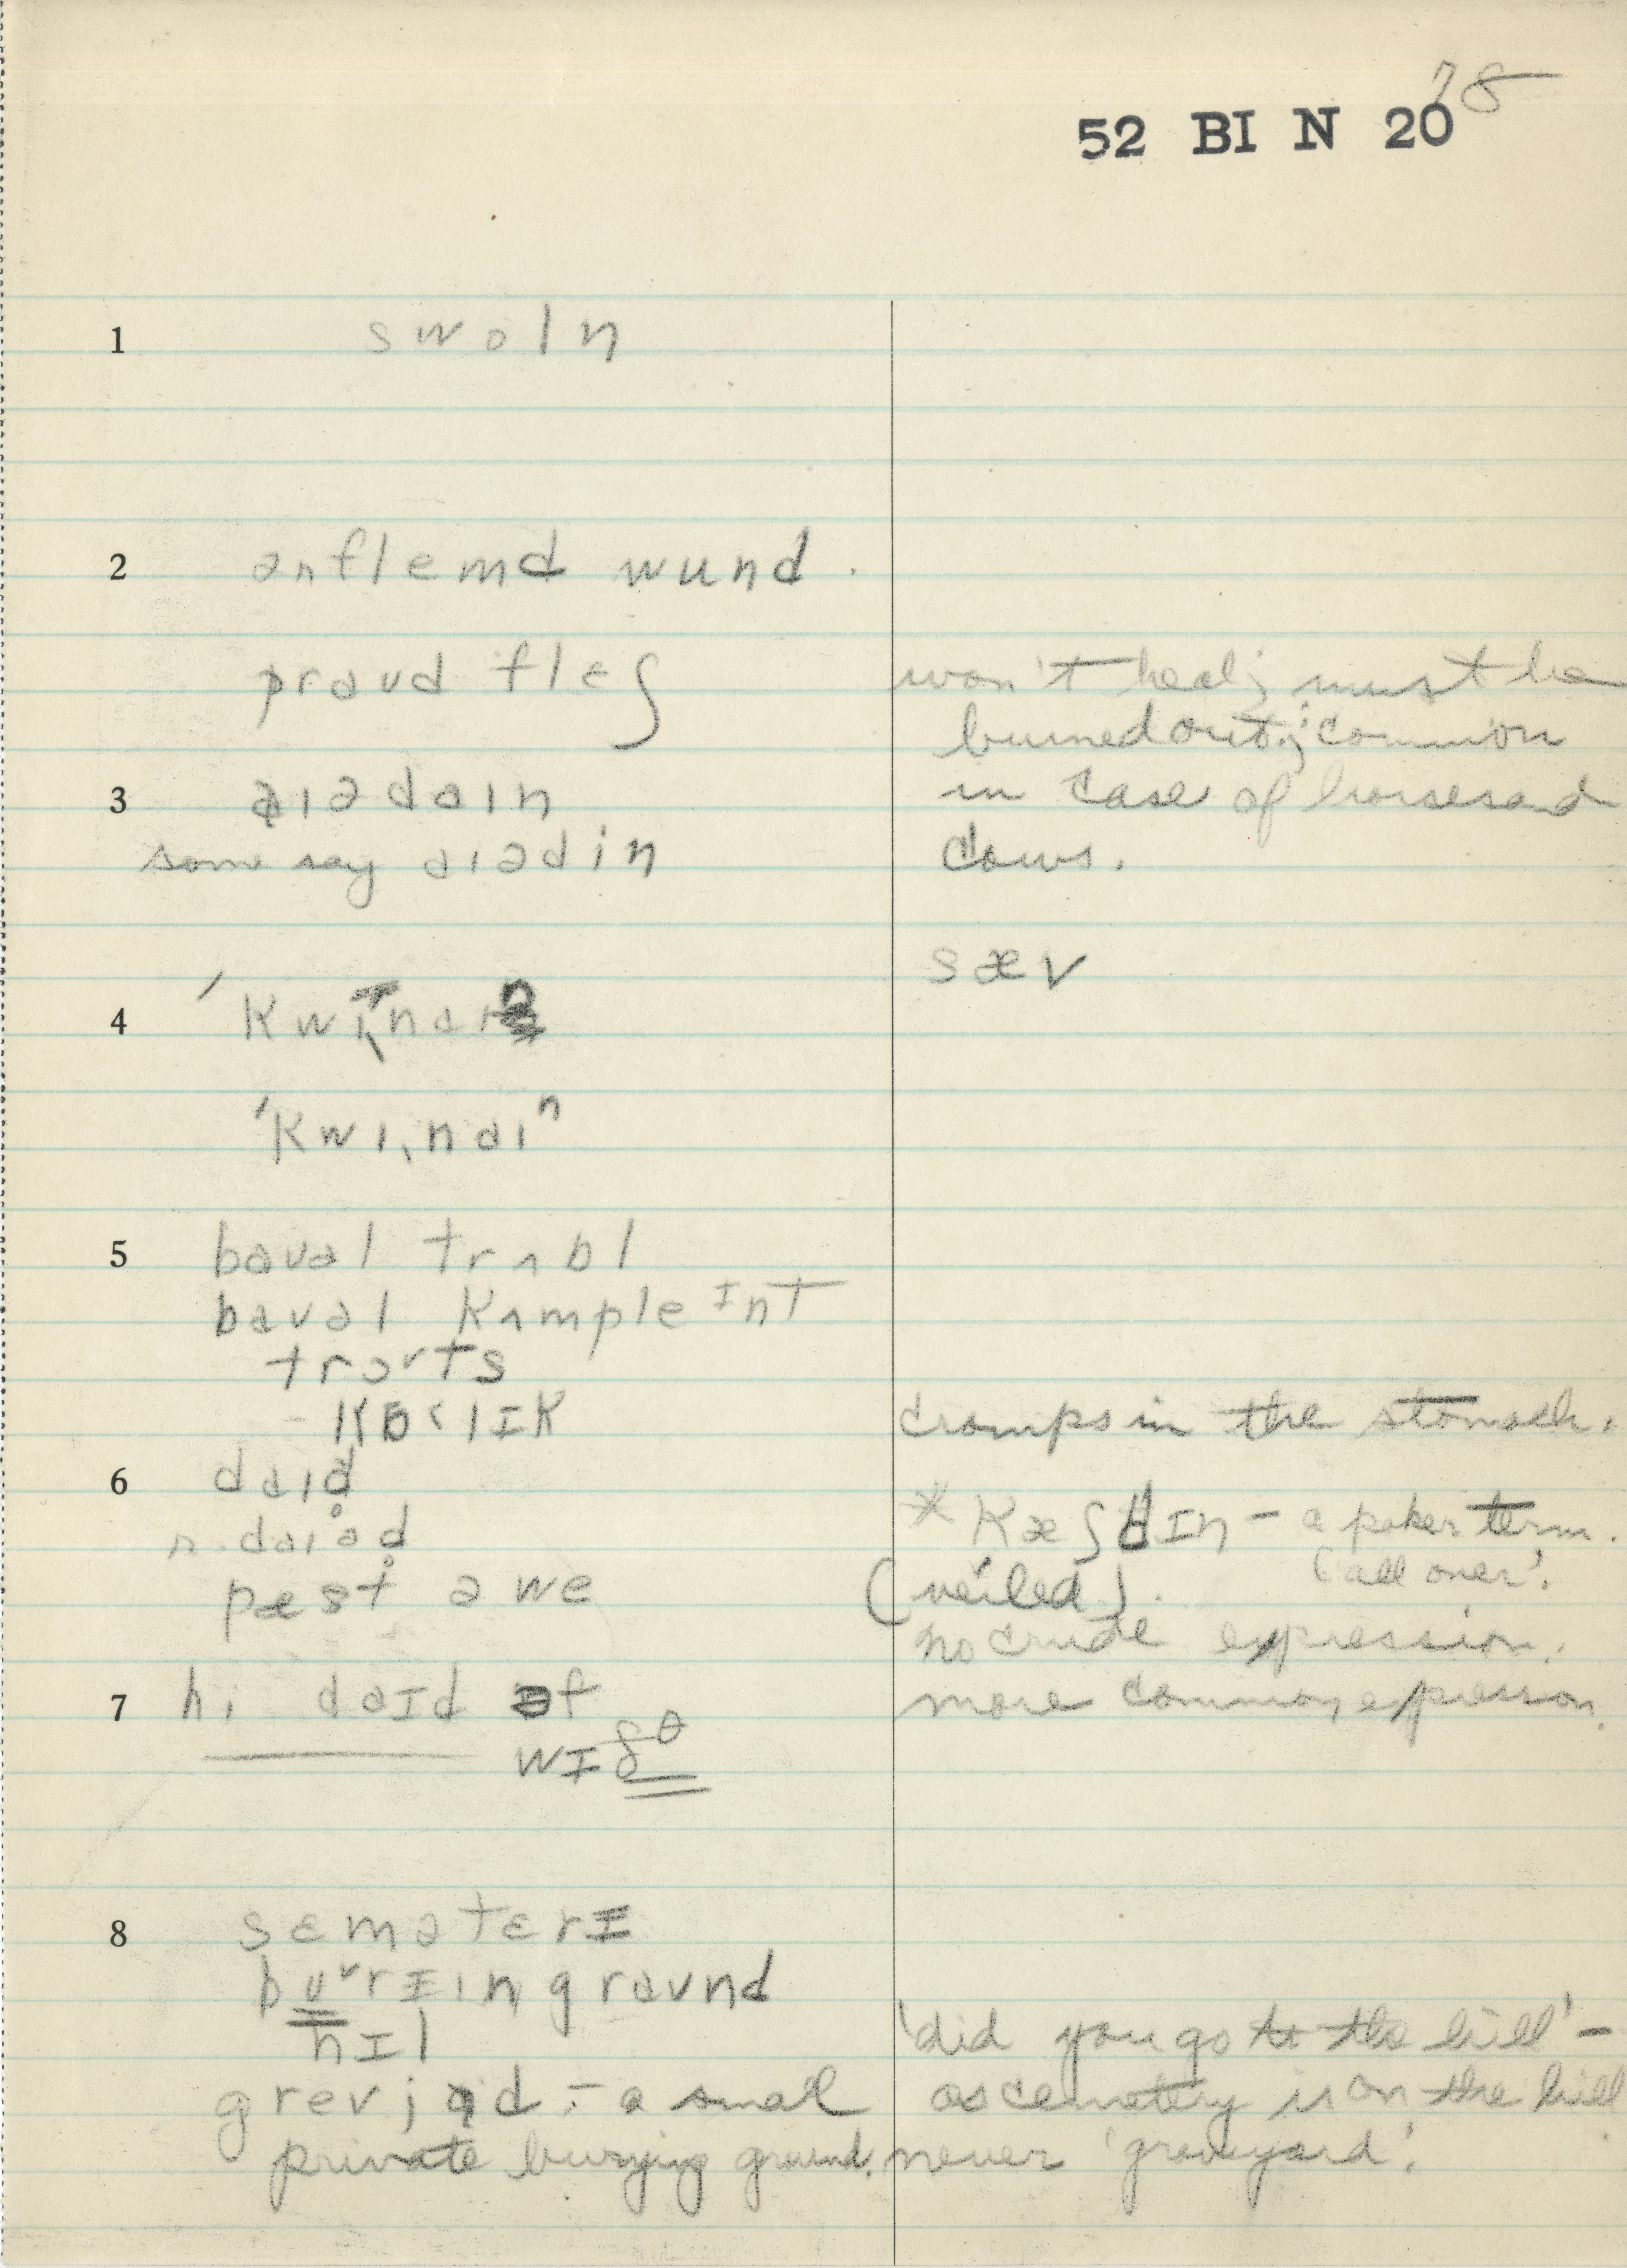 78
52 BI N 20
1 swoln
2 ənflemd wund.
praud flɛʃ won't heal; must be
burned out; common
3 aɪədaɪn in case of horses and
some say aɪədin cows.
sæv
4 ˈkwɪˌnaɪn
ˈkwɪˌnaɪn
5 bauəl trʌbl
bauəl kʌmpleɪnt
trɔts
kɒlɪk cramps in the stomach.
6 daɪd
r. daɪəd * Kæʃ ɪn – a poker term.
(veiled). 'all over'.
pæst əwe
no crude expression.
7 hi daɪd əf more common expression.
wɪðθ
8 sɛmətɛrɪ
burɪɪn graund
hɪl 'did you go to the hill' –
grevjad – a small as cemetery is on the hill
private burying ground. never 'graveyard'.